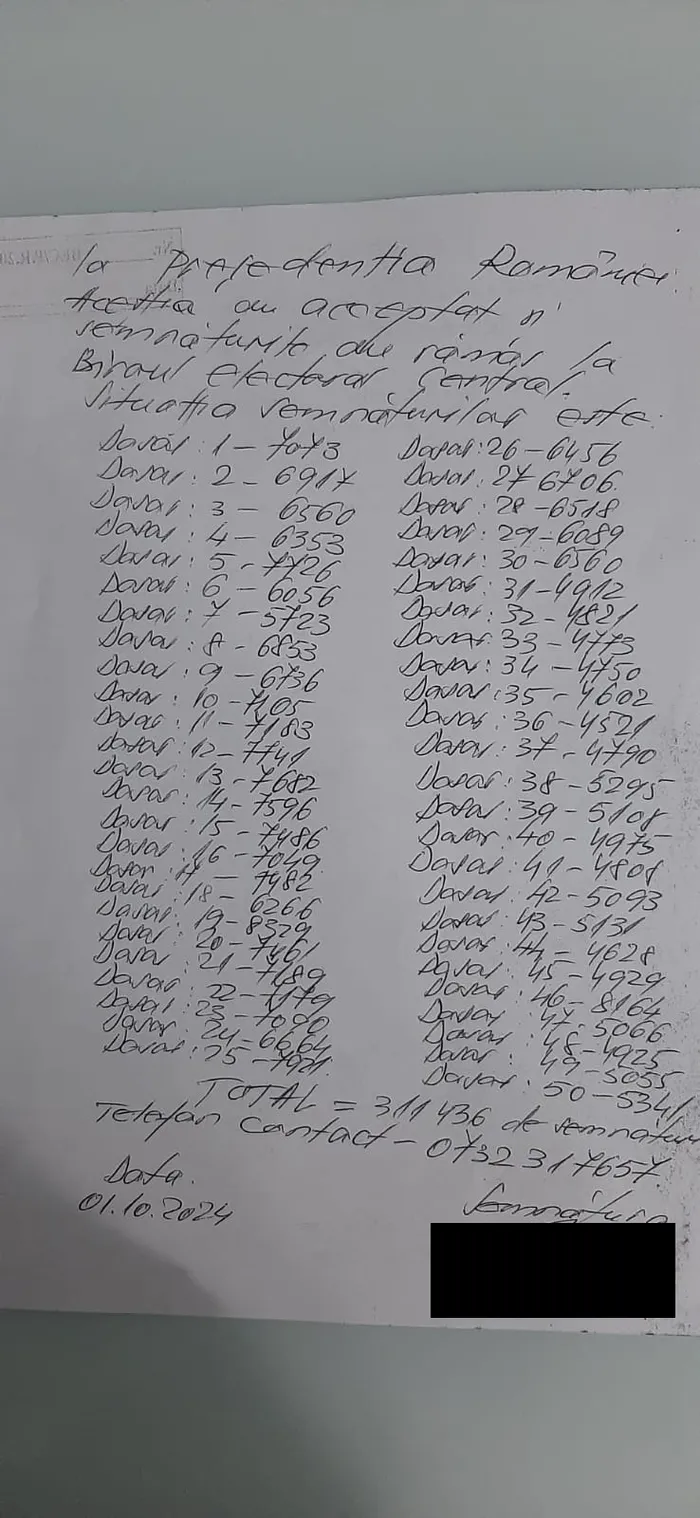 la Președenția României.
Aceștia au acceptat și
semnăturile au rămas la
Biroul Electoral Central.
Situația semnăturilor este:
Dosar: 1 - 7073
Dosar: 2 - 6917
Dosar: 3 - 6560
Dosar: 4 - 6353
Dosar: 5 - 7726
Dosar: 6 - 6056
Dosar: 7 - 5723
Dosar: 8 - 6853
Dosar: 9 - 6736
Dosar: 10 - 7105
Dosar: 11 - 7183
Dosar: 12 - 7741
Dosar: 13 - 7682
Dosar: 14 - 7596
Dosar: 15 - 7486
Dosar: 16 - 7049
Dosar: 17 - 7482
Dosar: 18 - 6266
Dosar: 19 - 8329
Dosar: 20 - 7461
Dosar: 21 - 7189
Dosar: 22 - 7179
Dosar: 23 - 7090
Dosar: 24 - 6664
Dosar: 25 - 7921
Dosar: 26 - 6456
Dosar: 27 6706
Dosar: 28 - 6518
Dosar: 29 - 6089
Dosar: 30 - 6560
Dosar: 31 - 4912
Dosar: 32 - 4821
Dosar: 33 - 4773
Dosar: 34 - 4750
Dosar: 35 - 4602
Dosar: 36 - 4521
Dosar: 37 - 4790
Dosar: 38 - 5295
Dosar: 39 - 5108
Dosar: 40 - 4975
Dosar: 41 - 4808
Dosar: 42 - 5093
Dosar: 43 - 5131
Dosar: 44 - 4628
Dosar: 45 - 4929
Dosar: 46 - 8164
Dosar: 47 - 5066
Dosar: 48 - 4925
Dosar: 49 - 5055
Dosar: 50 - 5341
TOTAL = 311 436 de semnături
Telefon contact - 0732317657
Data.
01.10.2024
Semnătura